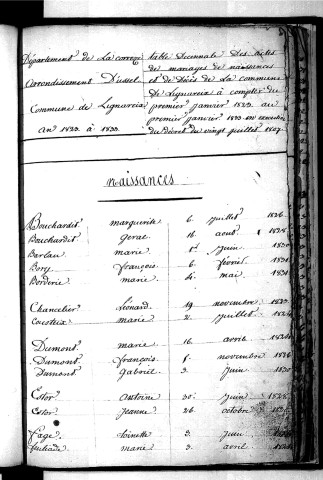 Département de La correze
Arrondissement D'ussel
Commune de Lignareix
an 1823 à 1833
table Decennale Des actes
de mariages de naissances
et de Décès de La commune
de Lignareix à compter du
premier janvier 1823 au
premier janvier 1833 en execution
du Décret du vingt juillet 1807
naissances
Bouchardit marguerite 6 juillet 1826
Bouchardit Geral 16 aout 1828
marie juin 1830
Bory françois 6 fevrier 1831
Borderie marie 4 mai 1831
Chancelier Léonard 19 novembre
marie 2 juillet
Dumont marie 16 avril
Dumont françois 8 novembre 1826
Dumont Gabriel 3 juin 1830
Estor Antoine 30 juin 1828
Estor jeanne 26 octobre
Fage toinette 3 juin
marie 3 avril